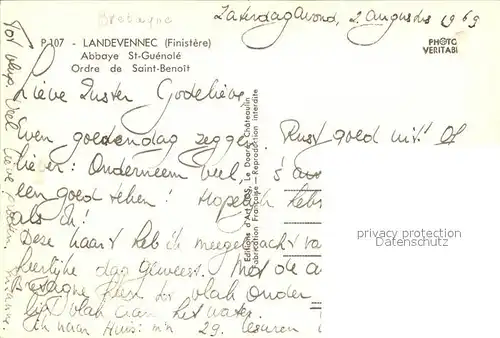 Bretagne
Zaterdagavond, 2 augustus 1969
P 107 - LANDEVENNEC (Finistère)
Abbaye St-Guénolé
Ordre de Saint-Benoît
PHOTO
VERITABL
Lieve Zuster Godelieve,
Even goedendag zeggen. Rust goed uit! Of
liever: Onderneem veel, 's
een goed teken! Hopelijk heb
als ik!
Deze kaart heb ik meegebracht va
heerlijke dag geweest. Met de a
Bretagne vlak onder
vlak aan het water.
29.
Editions d'Art JOS, Le Doaré, Châteaulin
Fabrication Française - Reproduction interdite
privacy protection
Datenschutz
Tot Veel lieve groeten, Suzanne.